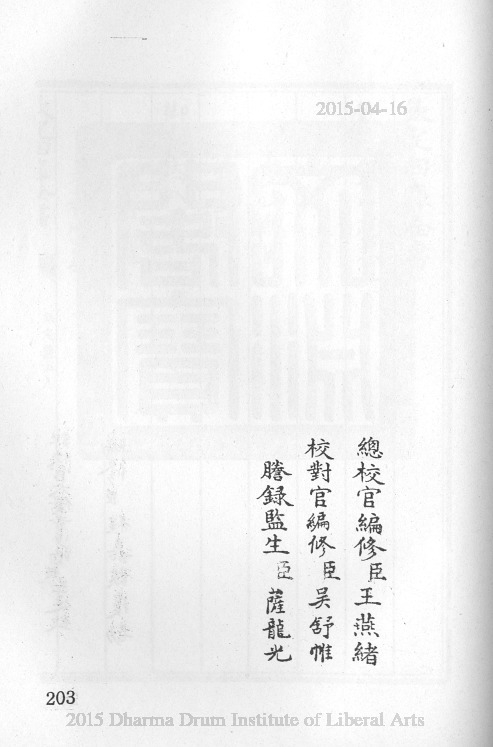 2015-04-16
總校官編修臣王燕緒
校對官編修臣吴舒帷
謄録監生臣薩龍光
203
2015 Dharma Drum Institute of Liberal Arts